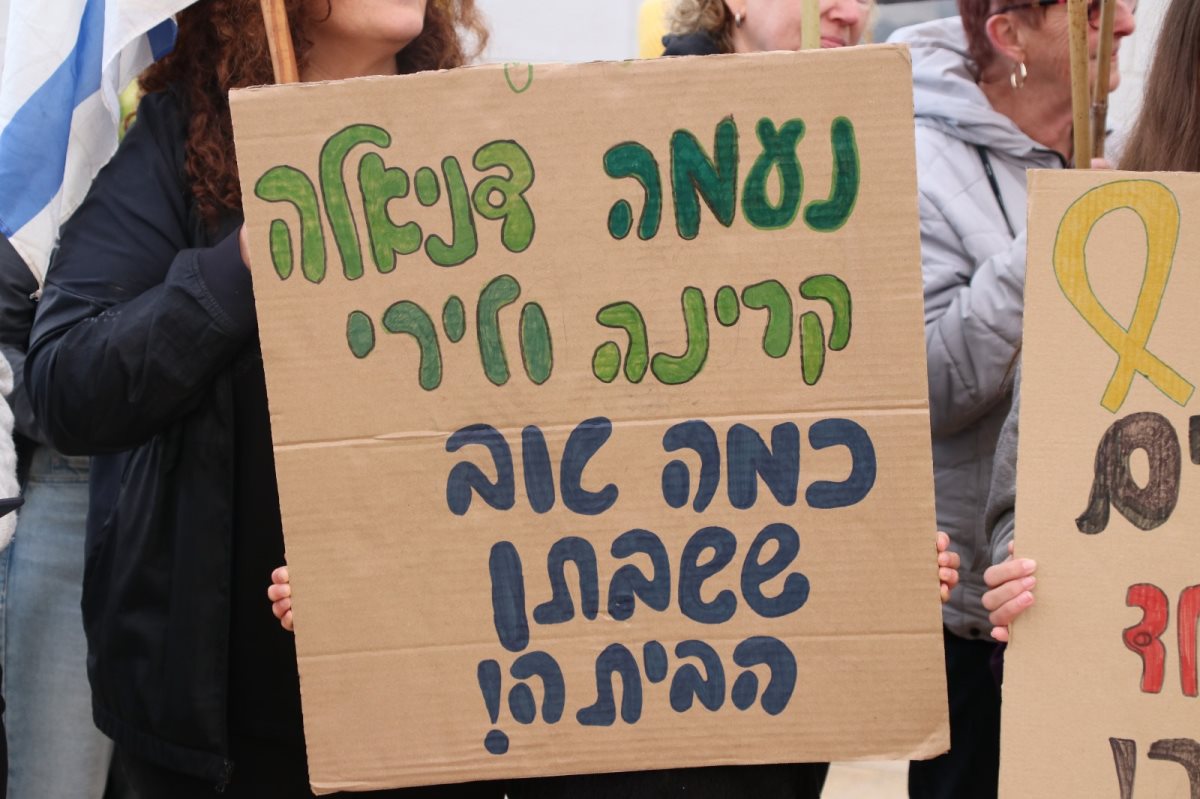 נעמה דניאלה
קרינה ולירי
כמה טוב
ששבתן
הביתה!